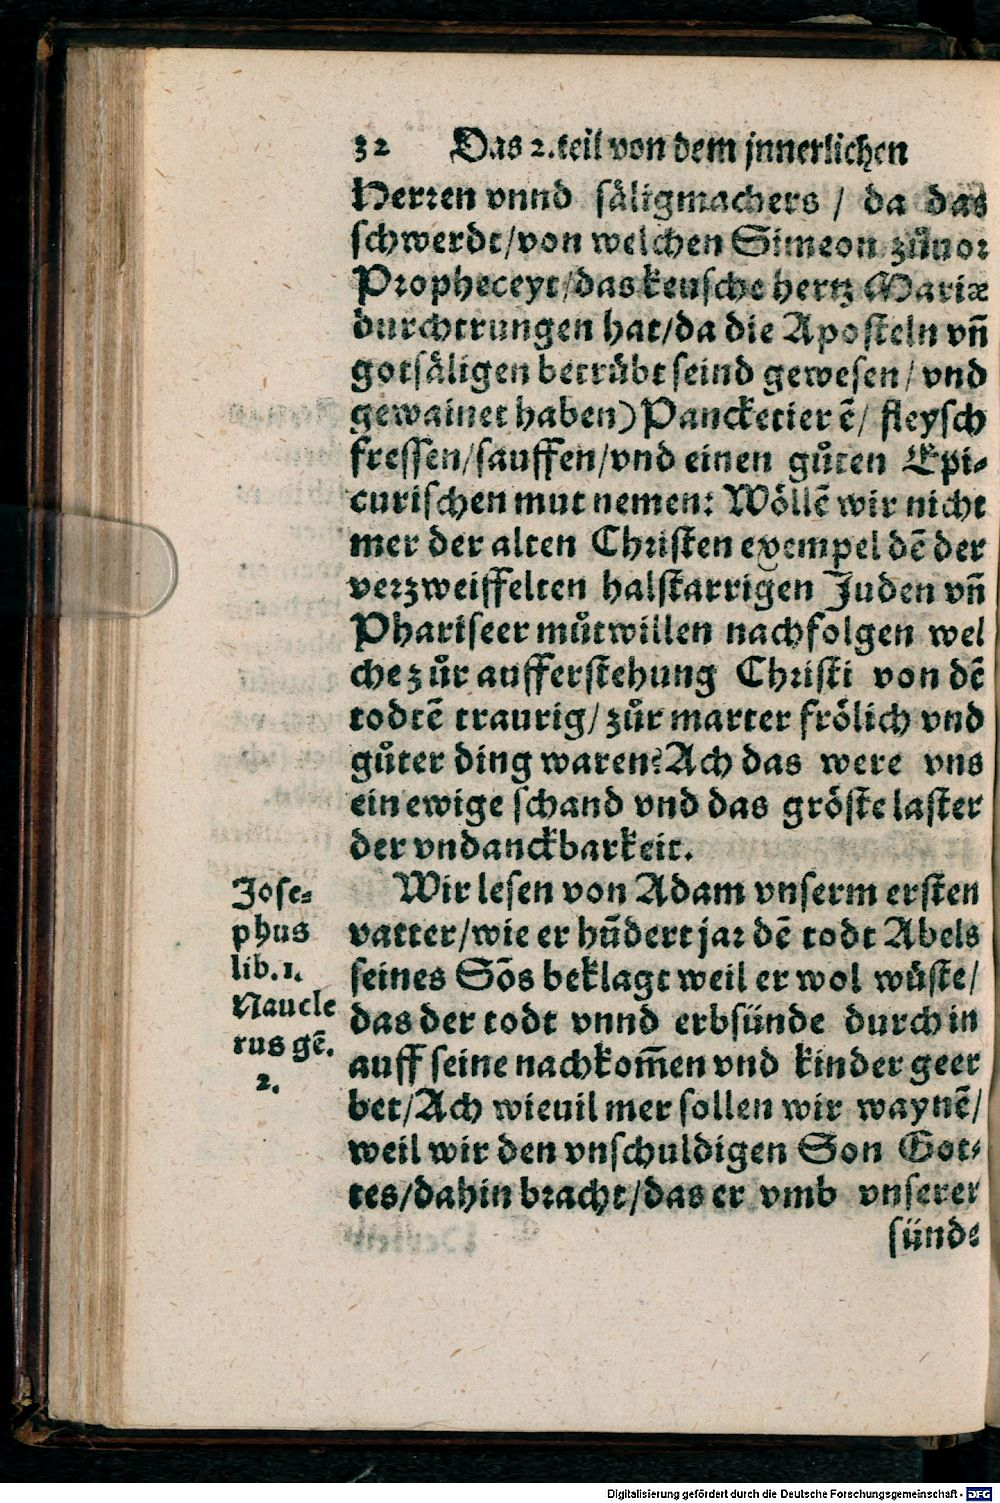 32 Das 2. teil von dem jnnerlichen
Herꝛen vnnd säligmachers / da das
schwerdt/von welchen Simeon zůuoꝛ
Pꝛopheceyt/das keusche hertz Mariæ
durchtrungen hat/da die Aposteln vn̄
gotsäligen betrübt seind gewesen/ vnd
gewainet haben) Pancketierē/ fleysch
fressen/sauffen/vnd einen gůten Epi-
curischen mut nemen: Wöllē wir nicht
mer der alten Chꝛisten exempel dē der
verzweiffelten halstarrigen Juden vn̄
Phariseer můtwillen nachfolgen wel
che zůr aufferstehung Chꝛisti von dē
todtē traurig/ zůr marter frölich vnd
gůter ding waren? Ach das were vns
ein ewige schand vnd das gröste laster
der vndanckbarkeit.
Wir lesen von Adam vnserm ersten
vatter/wie er hūdert jaꝛ dē todt Abels
seines Sōs beklagt weil er wol wůste/
das der todt vnnd erbsünde durch in
auff seine nachkom̄en vnd kinder geer
bet/Ach wieuil mer sollen wir waynē/
weil wir den vnschuldigen Son Got-
tes/dahin bꝛacht/das er vmb vnserer
sünde
Jose-
phus
lib. 1.
Naucle
rus gē.
2.
Digitalisierung gefördert durch die Deutsche Forschungsgemeinschaft - DFG